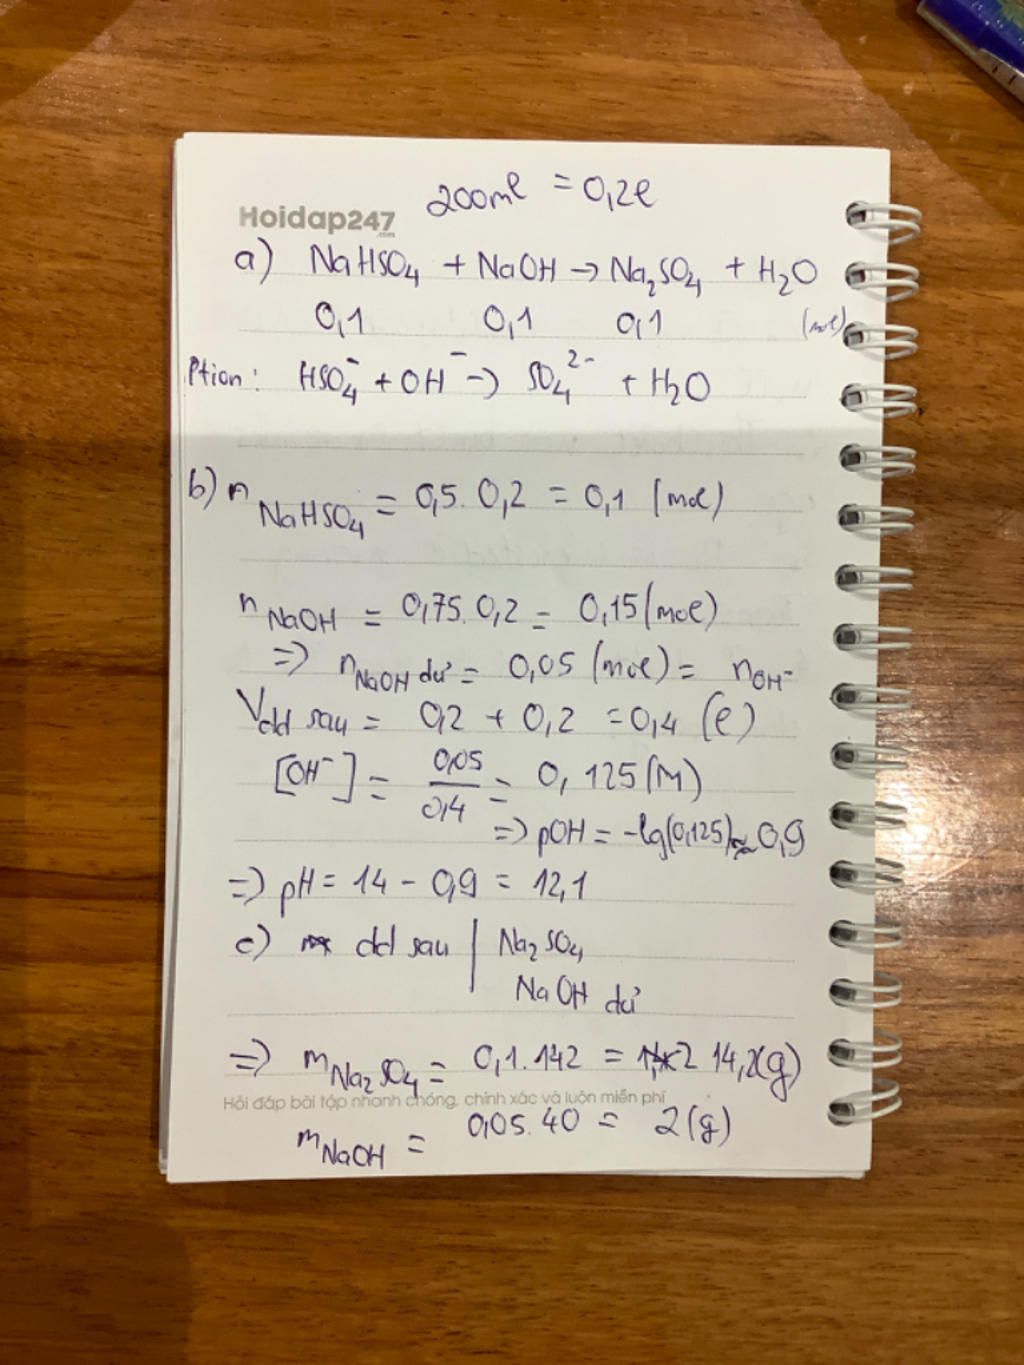 200ml = 0,2l
Hoidap247
.com
a) NaHSO₄ + NaOH → Na₂SO₄ + H₂O
0,1 0,1 0,1 (mol)
Ption: HSO₄⁻ + OH⁻ → SO₄²⁻ + H₂O
b) n NaHSO₄ = 0,5. 0,2 = 0,1 (mol)
n NaOH = 0,75. 0,2 = 0,15 (mol)
=> n NaOH dư = 0,05 (mol) = n OH⁻
V dd sau = 0,2 + 0,2 = 0,4 (l)
[OH⁻] = 0,05/0,4 = 0,125 (M)
=> pOH = -lg(0,125) ≈ 0,9
=> pH = 14 - 0,9 = 12,1
c) dd sau | Na₂SO₄
NaOH dư
=> m Na₂SO₄ = 0,1. 142 = 14,2(g)
Hỏi đáp bài tập nhanh chóng, chính xác và luôn miễn phí
m NaOH = 0,05. 40 = 2 (g)